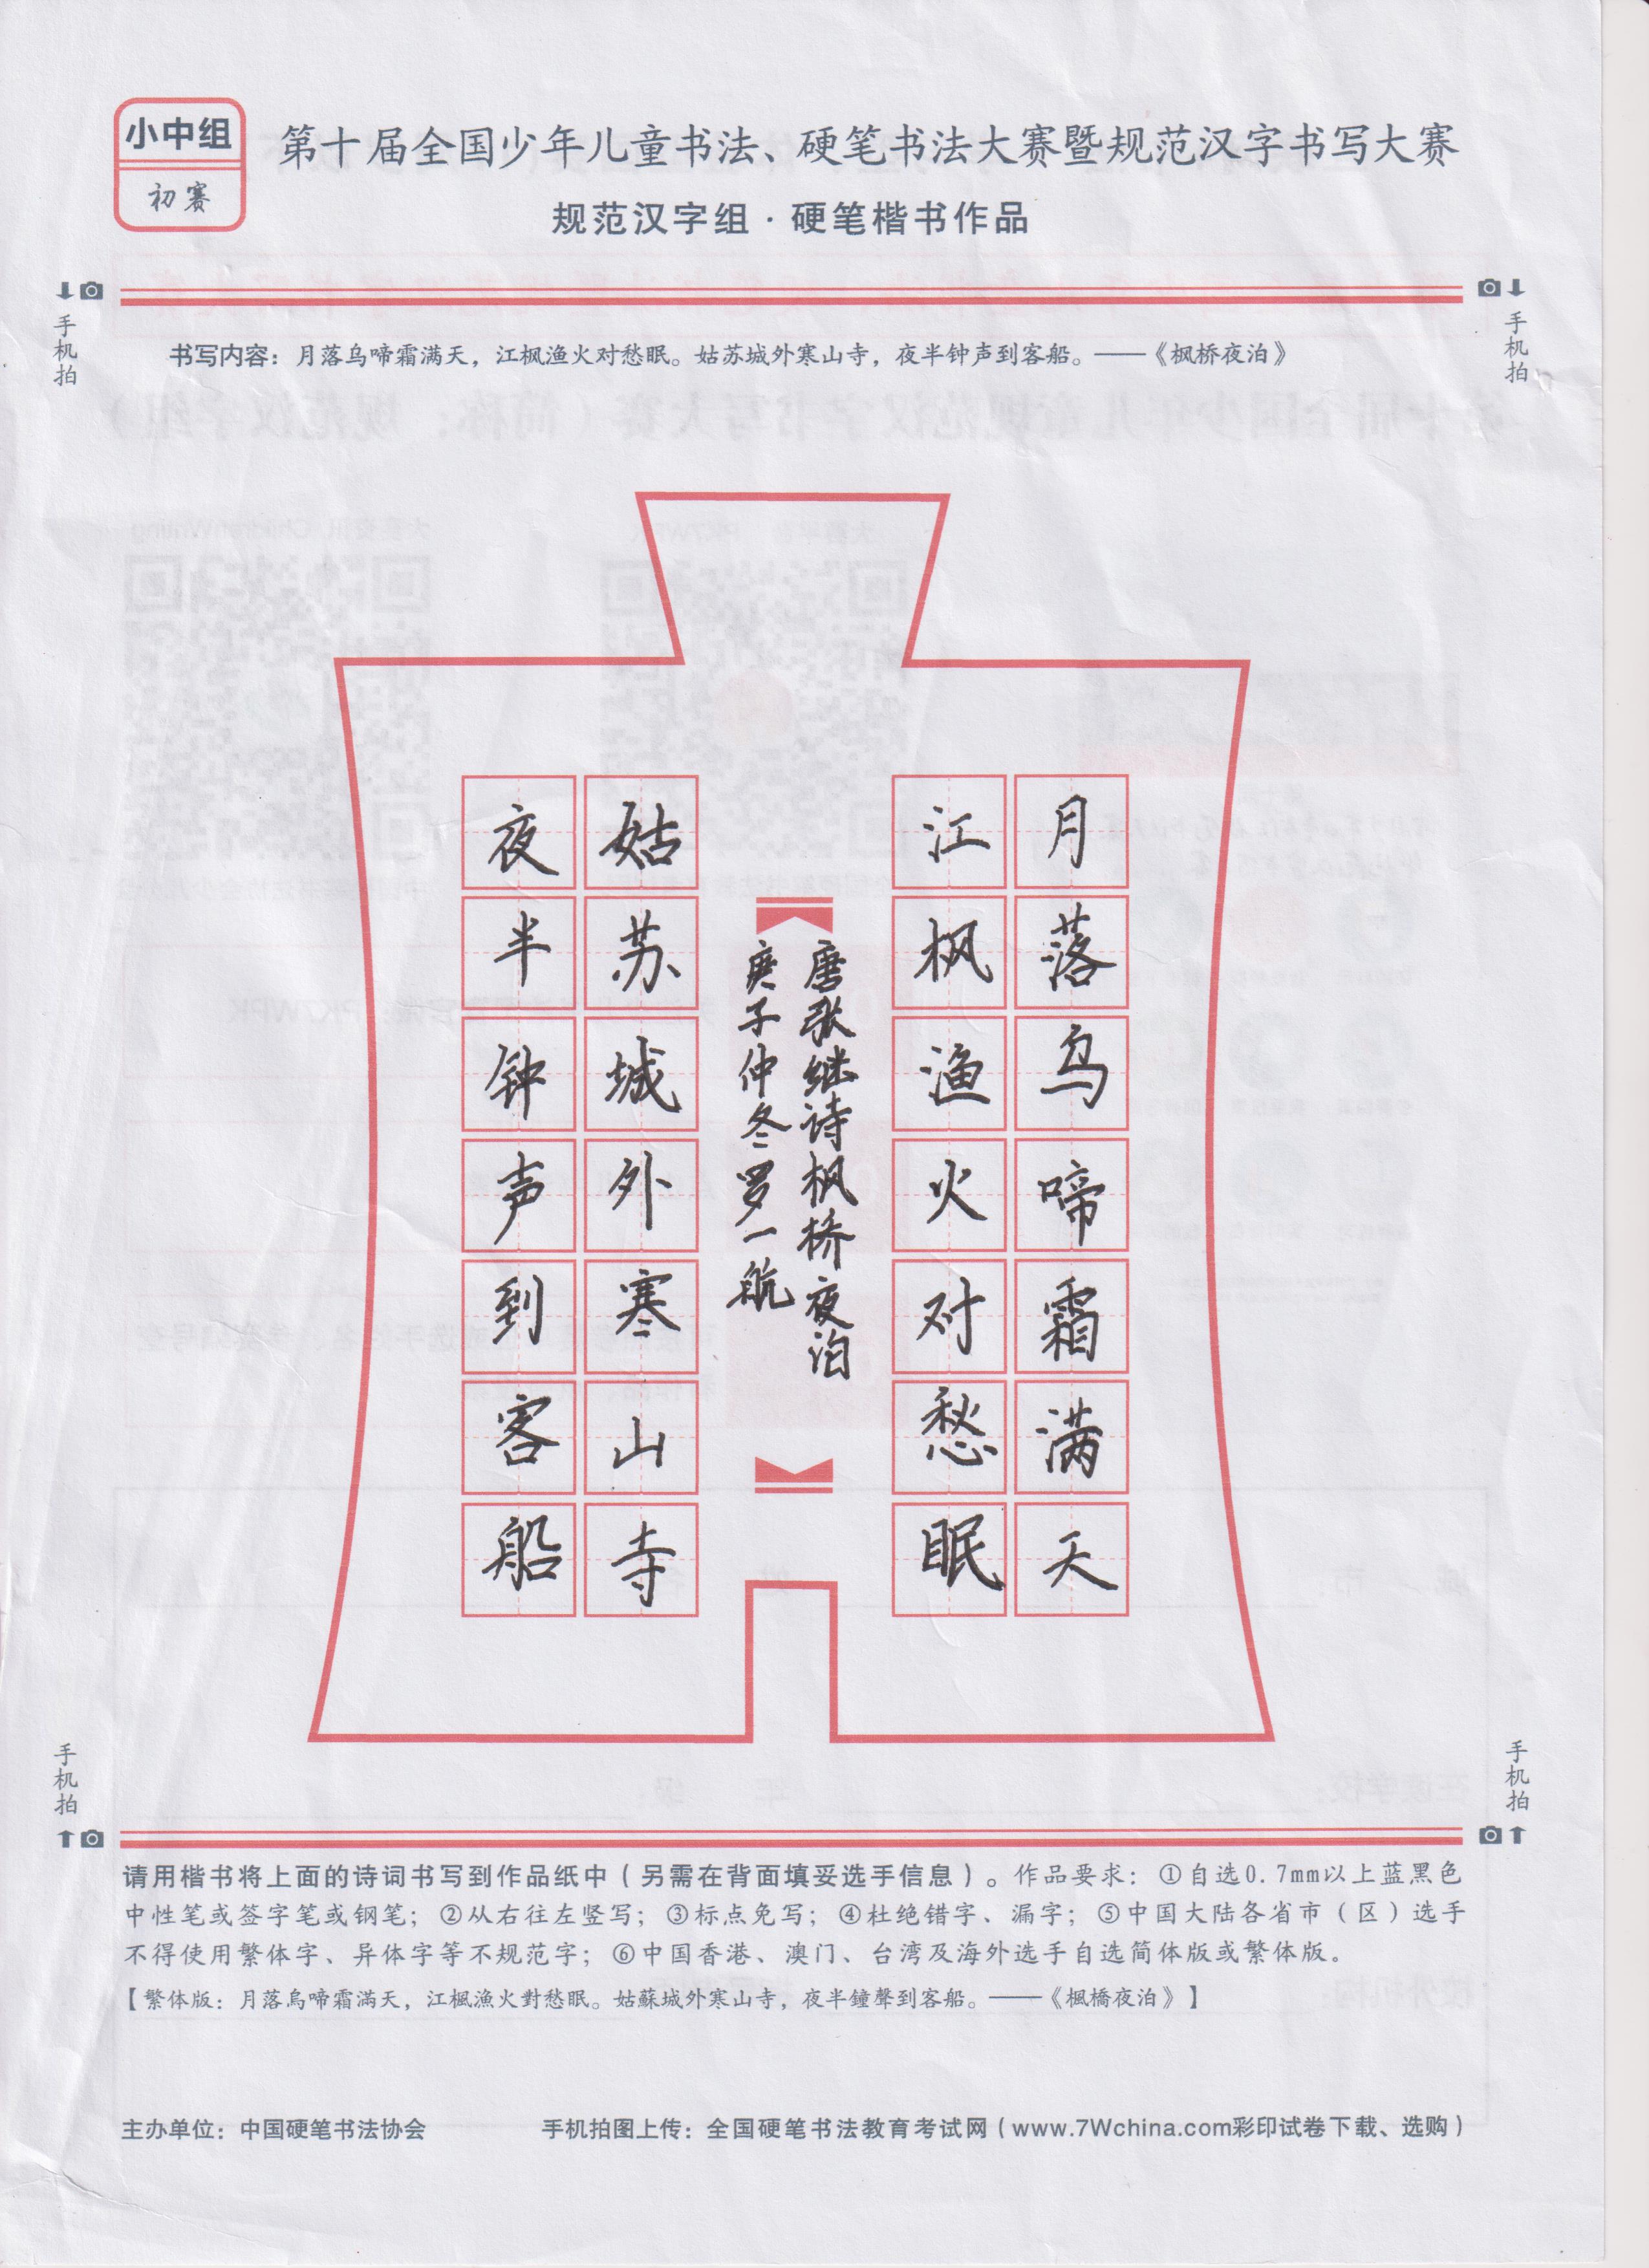 小中组
初赛
第十届全国少年儿童书法、硬笔书法大赛暨规范汉字书写大赛
规范汉字组·硬笔楷书作品
手机拍
手机拍
书写内容：月落乌啼霜满天，江枫渔火对愁眠。姑苏城外寒山寺，夜半钟声到客船。——《枫桥夜泊》
月落乌啼霜满天
江枫渔火对愁眠
唐张继诗枫桥夜泊
庚子仲冬罗一航
姑苏城外寒山寺
夜半钟声到客船
手机拍
手机拍
请用楷书将上面的诗词书写到作品纸中（另需在背面填妥选手信息）。作品要求：①自选0.7mm以上蓝黑色
中性笔或签字笔或钢笔；②从右往左竖写；③标点免写；④杜绝错字、漏字；⑤中国大陆各省市（区）选手
不得使用繁体字、异体字等不规范字；⑥中国香港、澳门、台湾及海外选手自选简体版或繁体版。
【繁体版：月落烏啼霜滿天，江楓漁火對愁眠。姑蘇城外寒山寺，夜半鐘聲到客船。——《楓橋夜泊》】
主办单位：中国硬笔书法协会
手机拍图上传：全国硬笔书法教育考试网（www.7Wchina.com彩印试卷下载、选购）